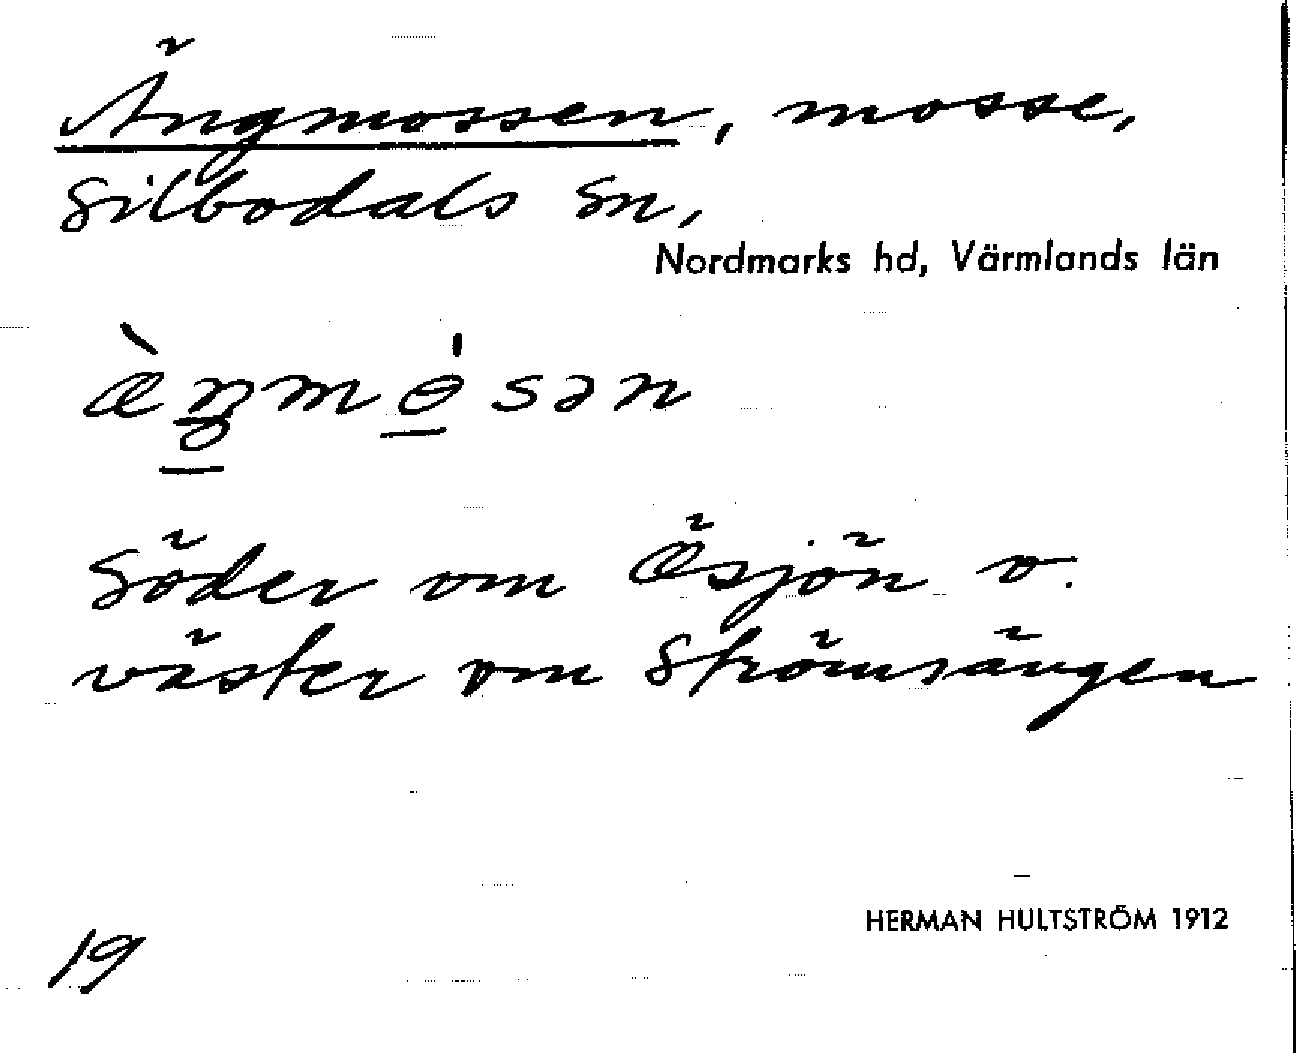 Ängmossen, mosse,
Silbodals sn,
Nordmarks hd, Värmlands län
æ̀ŋmɵ́sən
Söder om Ösjön o.
väster om Strömsängen
HERMAN HULTSTRÖM 1912
19